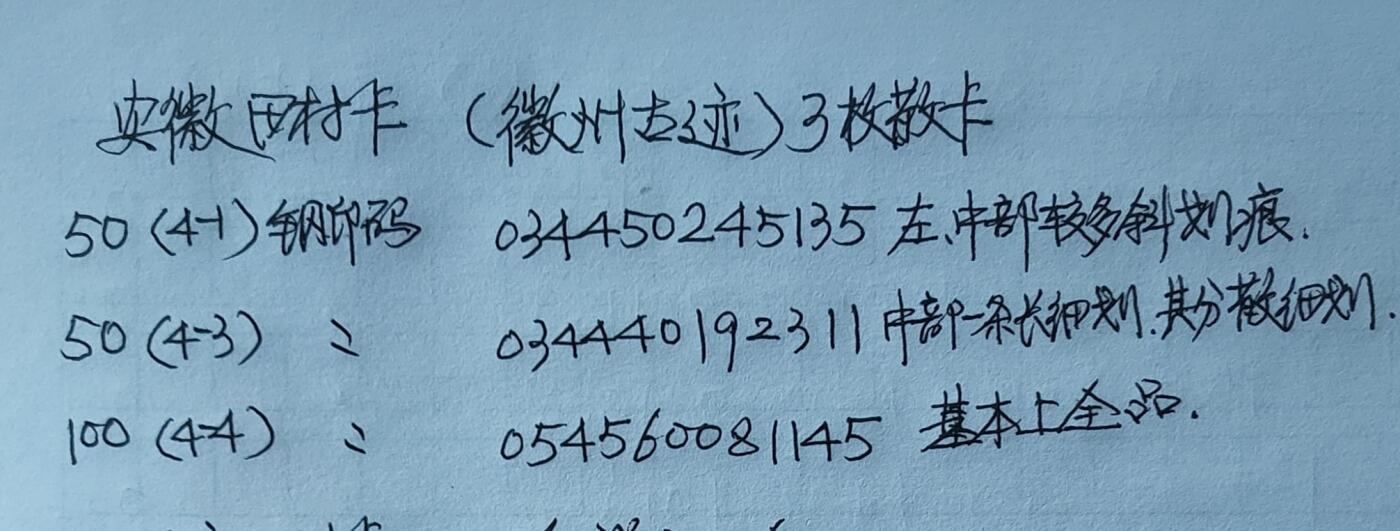 安徽田村卡（徽州古迹）3枚散卡
50（4-1）钢印码 034450245135 左、中部较多斜划痕.
50（4-3） 〃 034440192311 中部一条长细划.其分散细划.
100（4-4） 〃 054560081145 基本上全品.